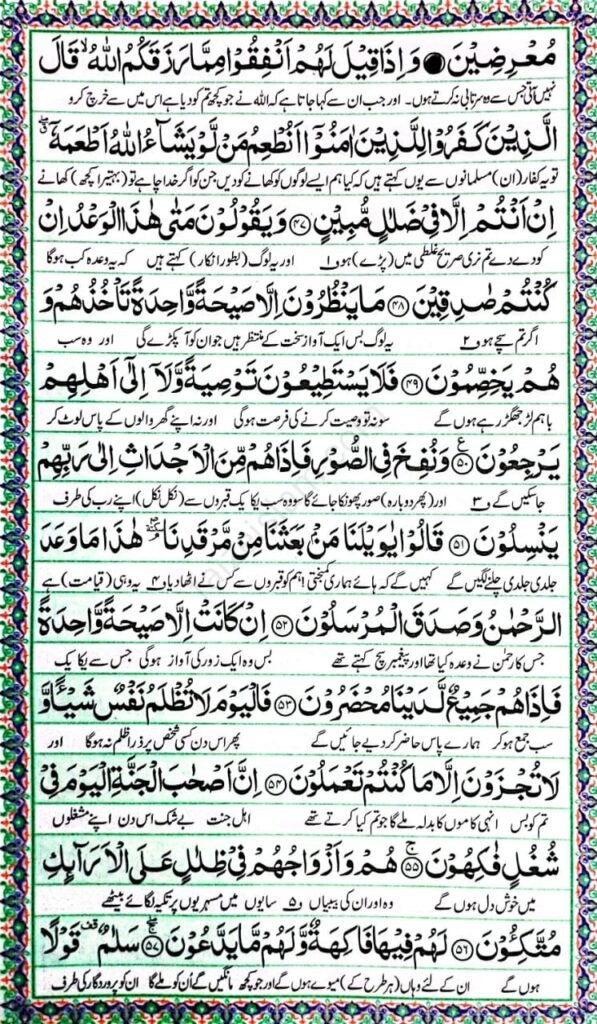 مُعْرِضِيْنَ ۝ وَاِذَا قِيْلَ لَهُمْ اَنْفِقُوْا مِمَّا رَزَقَكُمُ اللّٰهُ ۙ قَالَ
نہیں آتی جس سے وہ سرتابی نہ کرتے ہوں۔ اور جب ان سے کہا جاتا ہے کہ اللہ نے جو کچھ تم کو دیا ہے اس میں سے خرچ کرو
الَّذِيْنَ كَفَرُوْا لِلَّذِيْنَ اٰمَنُوْٓا اَنُطْعِمُ مَنْ لَّوْ يَشَآءُ اللّٰهُ اَطْعَمَهٗٓ ۖ
تو یہ کفار (ان) مسلمانوں سے یوں کہتے ہیں کہ کیا ہم ایسے لوگوں کو کھانے کو دیں جن کو اگر خدا چاہے تو (بہتیرا کچھ) کھانے
اِنْ اَنْتُمْ اِلَّا فِيْ ضَلٰلٍ مُّبِيْنٍ ﴿۴۷﴾ وَيَقُوْلُوْنَ مَتٰى هٰذَا الْوَعْدُ اِنْ
کو دے دے تم نری صریح غلطی میں (پڑے) ہو ۱ اور یہ لوگ (بطور انکار) کہتے ہیں کہ یہ وعدہ کب ہوگا
كُنْتُمْ صٰدِقِيْنَ ﴿۴۸﴾ مَا يَنْظُرُوْنَ اِلَّا صَيْحَةً وَّاحِدَةً تَاْخُذُهُمْ وَ
اگر تم سچے ہو ۲ یہ لوگ بس ایک آواز سخت کے منتظر ہیں جو ان کو آ پکڑے گی اور وہ سب
هُمْ يَخِصِّمُوْنَ ﴿۴۹﴾ فَلَا يَسْتَطِيْعُوْنَ تَوْصِيَةً وَّلَآ اِلٰٓى اَهْلِهِمْ
باہم لڑ جھگڑ رہے ہوں گے سو نہ تو وصیت کرنے کی فرصت ہوگی اور نہ اپنے گھر والوں کے پاس لوٹ کر
يَرْجِعُوْنَ ﴿۵۰﴾ وَنُفِخَ فِي الصُّوْرِ فَاِذَا هُمْ مِّنَ الْاَجْدَاثِ اِلٰى رَبِّهِمْ
جا سکیں گے ۳ اور (پھر دوبارہ) صور پھونکا جائے گا سو وہ سب یکایک قبروں سے (نکل نکل) اپنے رب کی طرف
يَنْسِلُوْنَ ﴿۵۱﴾ قَالُوْا يٰوَيْلَنَا مَنْ بَعَثَنَا مِنْ مَّرْقَدِنَا هٰذَا مَا وَعَدَ
جلدی جلدی چلنے لگیں گے کہیں گے کہ ہائے ہماری کمبختی! ہم کو قبروں سے کس نے اٹھا دیا ۴ یہ وہی (قیامت) ہے
الرَّحْمٰنُ وَصَدَقَ الْمُرْسَلُوْنَ ﴿۵۲﴾ اِنْ كَانَتْ اِلَّا صَيْحَةً وَّاحِدَةً
جس کا رحمٰن نے وعدہ کیا تھا اور پیغمبر سچ کہتے تھے بس وہ ایک زور کی آواز ہوگی جس سے یکایک
فَاِذَا هُمْ جَمِيْعٌ لَّدَيْنَا مُحْضَرُوْنَ ﴿۵۳﴾ فَالْيَوْمَ لَا تُظْلَمُ نَفْسٌ شَيْـًٔا وَّ
سب جمع ہو کر ہمارے پاس حاضر کر دیے جائیں گے پھر اس دن کسی شخص پر ذرا ظلم نہ ہوگا اور
لَا تُجْزَوْنَ اِلَّا مَا كُنْتُمْ تَعْمَلُوْنَ ﴿۵۴﴾ اِنَّ اَصْحٰبَ الْجَنَّةِ الْيَوْمَ فِيْ
تم کو بس انہی کاموں کا بدلہ ملے گا جو تم کیا کرتے تھے اہل جنت بے شک اس دن اپنے مشغلوں
شُغُلٍ فٰكِهُوْنَ ﴿۵۵﴾ هُمْ وَاَزْوَاجُهُمْ فِيْ ظِلٰلٍ عَلَى الْاَرَآئِكِ
میں خوش دل ہوں گے وہ اور ان کی بیبیاں ۵ سایوں میں مسہریوں پر تکیہ لگائے بیٹھے
مُتَّكِـُٔوْنَ ﴿۵۶﴾ لَهُمْ فِيْهَا فَاكِهَةٌ وَّلَهُمْ مَّا يَدَّعُوْنَ ﴿۵۷﴾ سَلٰمٌ قَوْلًا
ہوں گے ان کے لئے وہاں (ہر طرح کے) میوے ہوں گے اور جو کچھ مانگیں گے اُن کو ملے گا ان کو پروردگار کی طرف